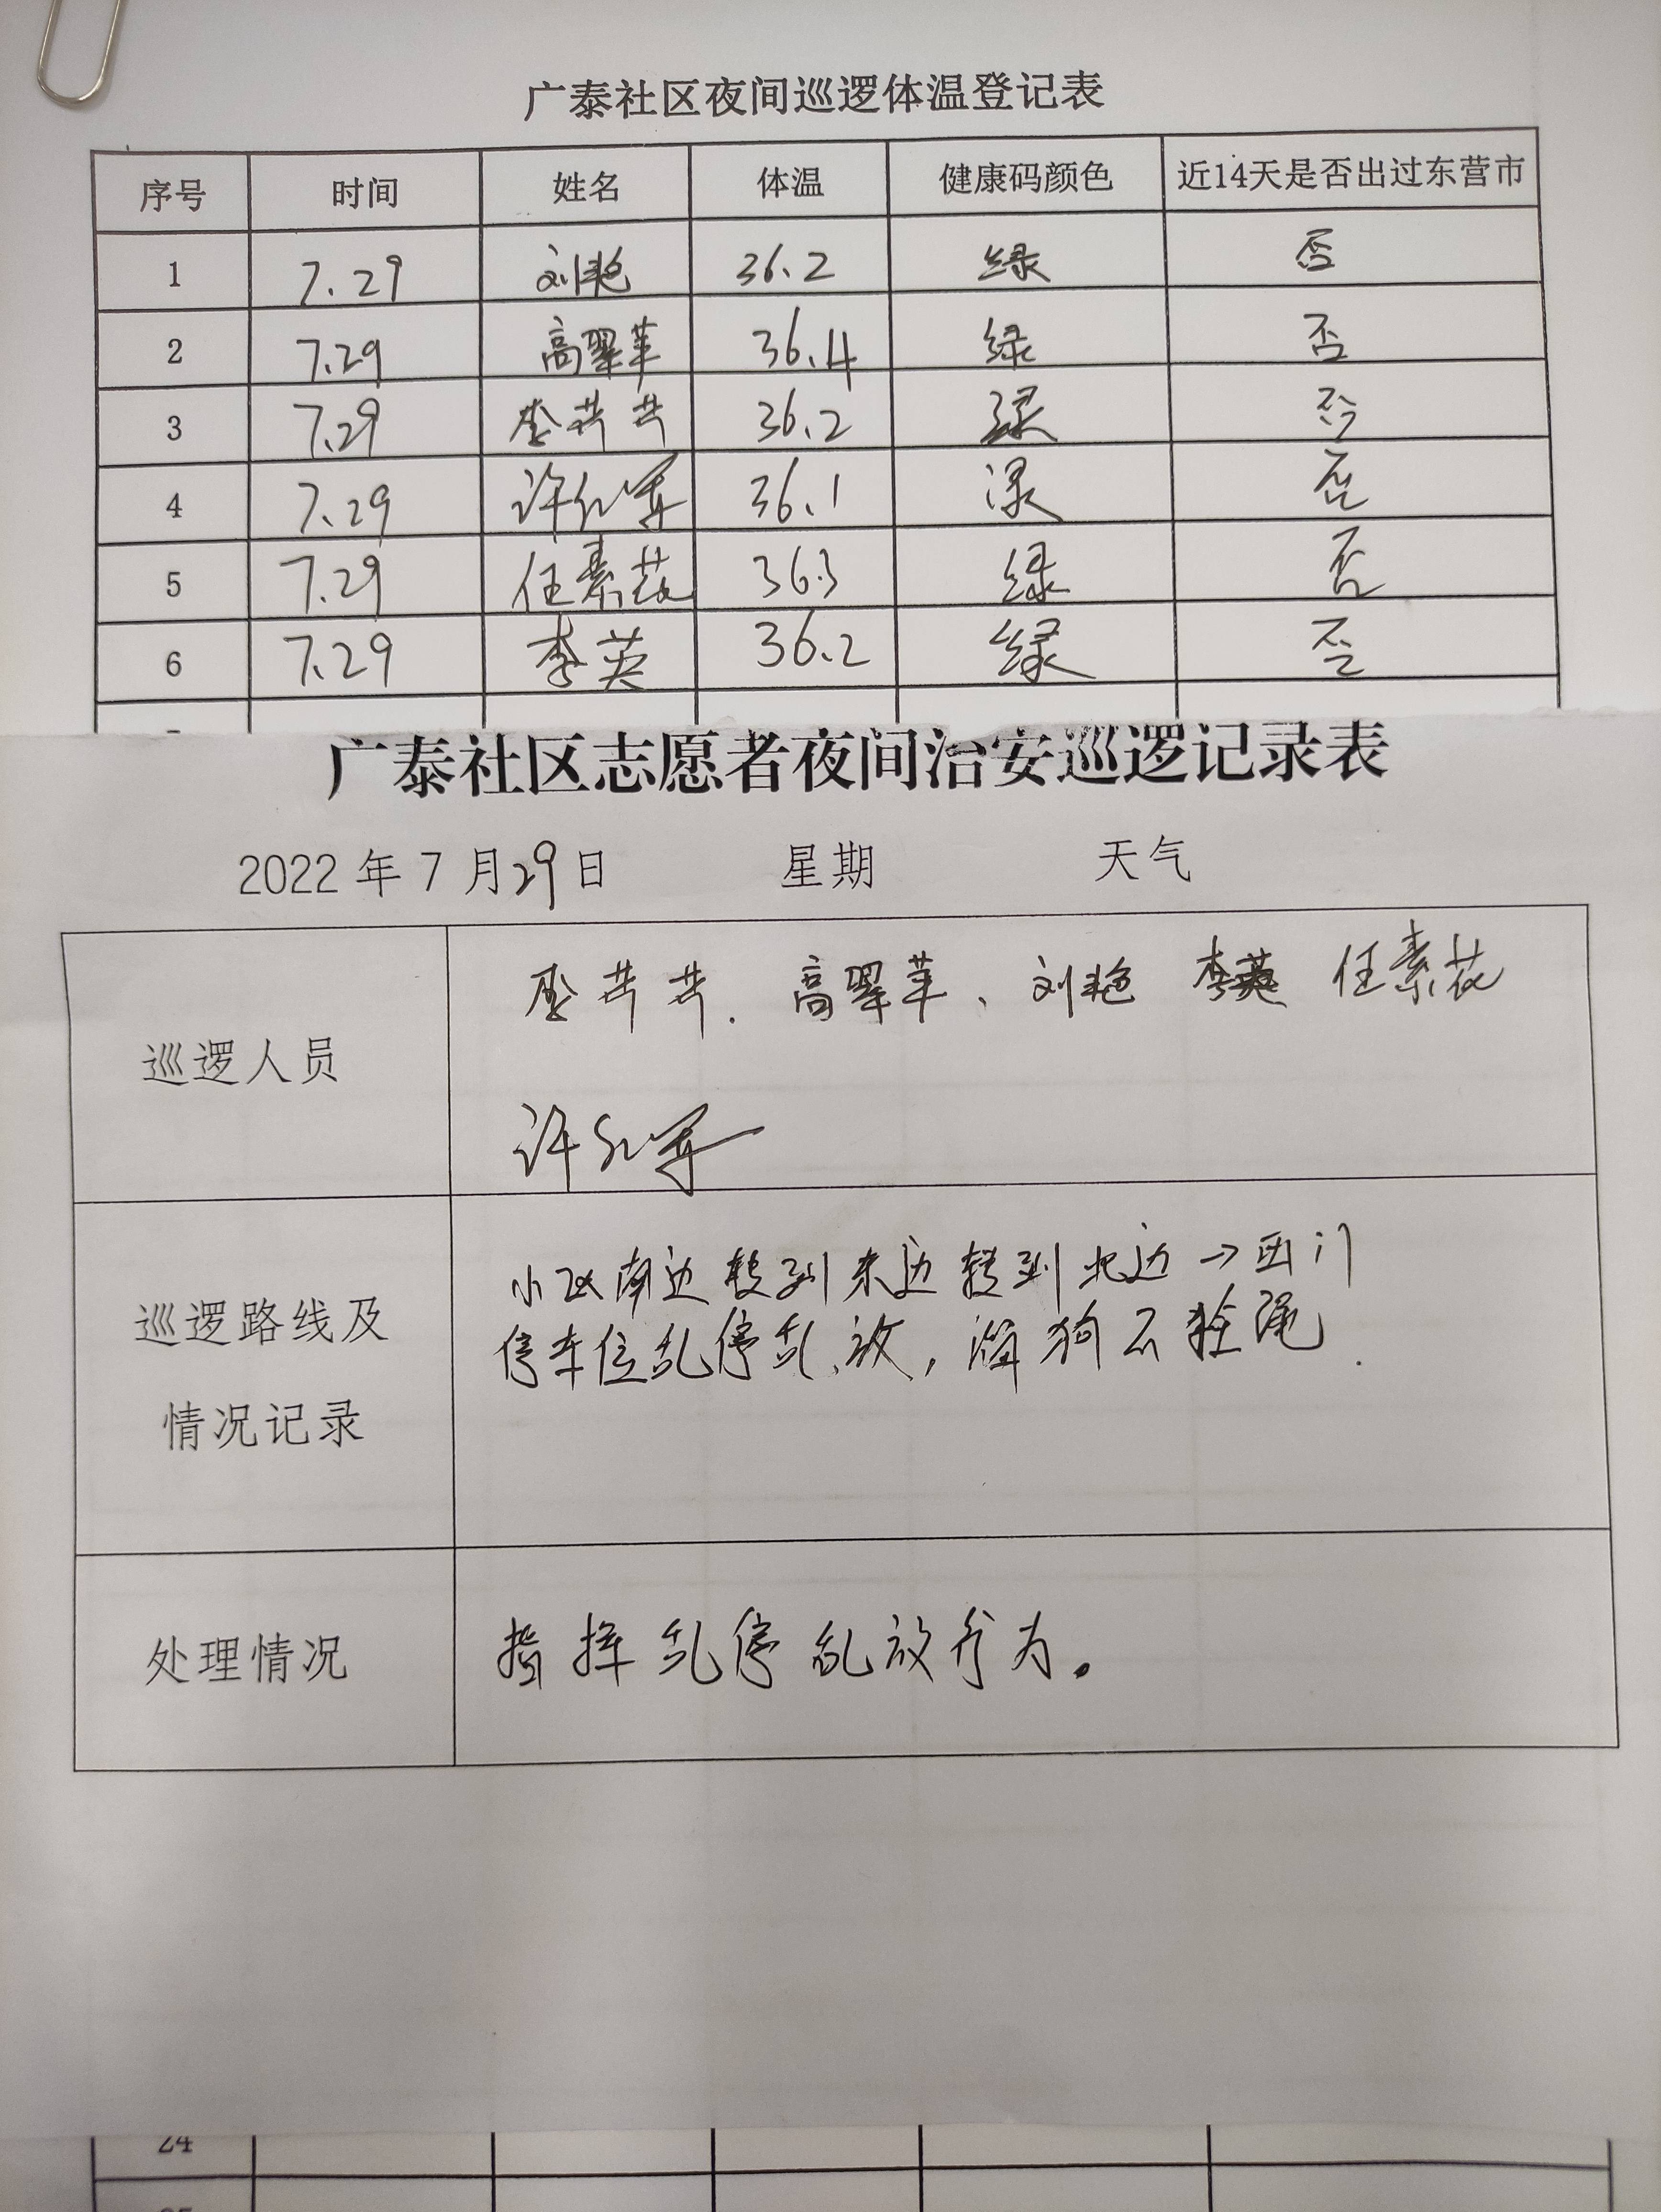 广泰社区夜间巡逻体温登记表
序号 时间 姓名 体温 健康码颜色 近14天是否出过东营市
1 7.29 刘艳 36.2 绿 否
2 7.29 高翠苹 36.4 绿 否
3 7.29 李芹芹 36.2 绿 否
4 7.29 许红军 36.1 绿 否
5 7.29 任素花 36.3 绿 否
6 7.29 李英 36.2 绿 否
广泰社区志愿者夜间治安巡逻记录表
2022年7月29日 星期 天气
巡逻人员
李芹芹. 高翠苹、刘艳 李英 任素花
许红军
巡逻路线及
情况记录
小区南边转到东边转到北边→西门
停车位乱停乱放，遛狗不拴绳.
处理情况
指挥乱停乱放行为。
24